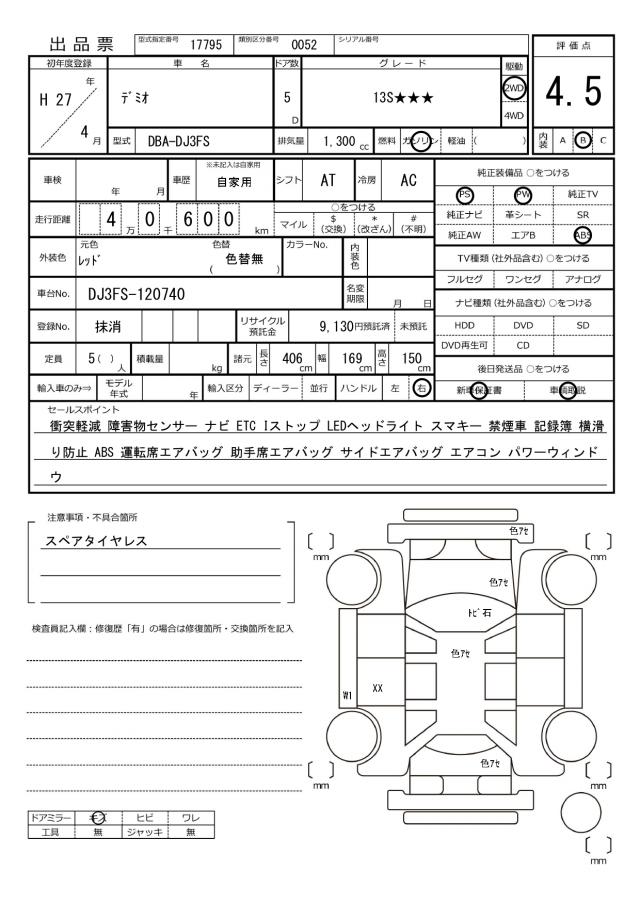 出品票 型式指定番号 17795 類別区分番号 0052 シリアル番号
評価点
4.5
内装 A B C
初年度登録 車名 ドア数 グレード 駆動
H 27 年 4 月 デミオ 5 D 13S★★★ 2WD 4WD
型式 DBA-DJ3FS 排気量 1,300 cc 燃料 ガソリン 軽油 ( )
車検 年 月 車歴 ※未記入は自家用 自家用 シフト AT 冷房 AC
走行距離 4 万 0 千 6 0 0 km ○をつける マイル $ (交換) * (改ざん) # (不明)
外装色 元色 レッド 色替 ( 色替無 ) カラーNo. 内装色
車台No. DJ3FS-120740 名変期限 月 日
登録No. 抹消 リサイクル預託金 9,130円預託済 未預託
定員 5 ( ) 人 積載量 kg 諸元 長さ 406 cm 幅 169 cm 高さ 150 cm
輸入車のみ⇒ モデル年式 年 輸入区分 ディーラー 並行 ハンドル 左 右
純正装備品 ○をつける
PS PW 純正TV
純正ナビ 革シート SR
純正AW エアB ABS
TV種類 (社外品含む) ○をつける
フルセグ ワンセグ アナログ
ナビ種類 (社外品含む) ○をつける
HDD DVD SD
DVD再生可 CD
後日発送品 ○をつける
新車保証書 車輌取説
セールスポイント
衝突軽減 障害物センサー ナビ ETC Iストップ LEDヘッドライト スマキー 禁煙車 記録簿 横滑
り防止 ABS 運転席エアバッグ 助手席エアバッグ サイドエアバッグ エアコン パワーウィンド
ウ
注意事項・不具合箇所
スペアタイヤレス
検査員記入欄：修復歴「有」の場合は修復箇所・交換箇所を記入
色アセ
色アセ
トビ石
色アセ
W1 XX
色アセ
[ ] mm
[ ] mm
[ ] mm
[ ] mm
[ ] mm
ドアミラー キズ ヒビ ワレ
工具 無 ジャッキ 無